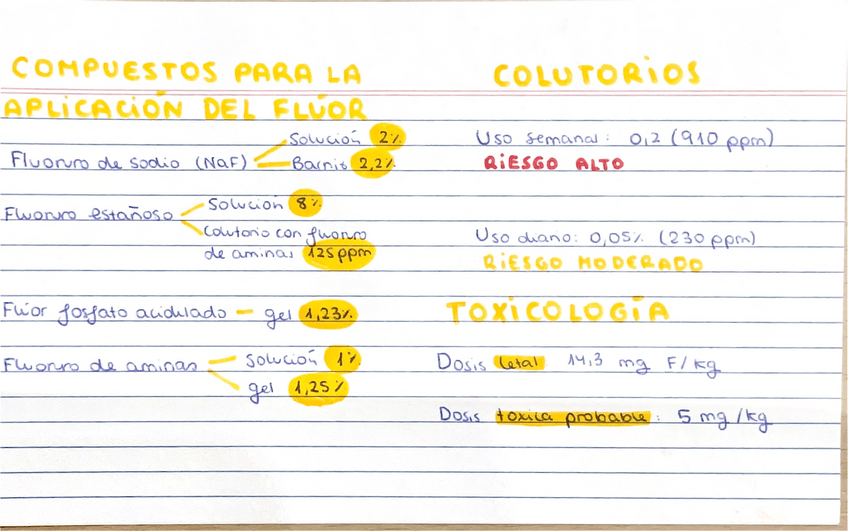 COMPUESTOS PARA LA
APLICACIÓN DEL FLÚOR
Solución 2%
Fluoruro de sodio (NaF)
Barniz 2,2%
Solución 8%
Fluoruro estañoso
Colutorio con fluoruro
de aminas 125ppm
Flúor fosfato acidulado - gel 1,23%
Solución 1%
Fluoruro de aminas
gel 1,25%
COLUTORIOS
Uso semanal: 0,2 (910 ppm)
RIESGO ALTO
Uso diario: 0,05% (230 ppm)
RIESGO MODERADO
TOXICOLOGÍA
Dosis letal 14,3 mg F/kg
Dosis toxica probable: 5 mg/kg